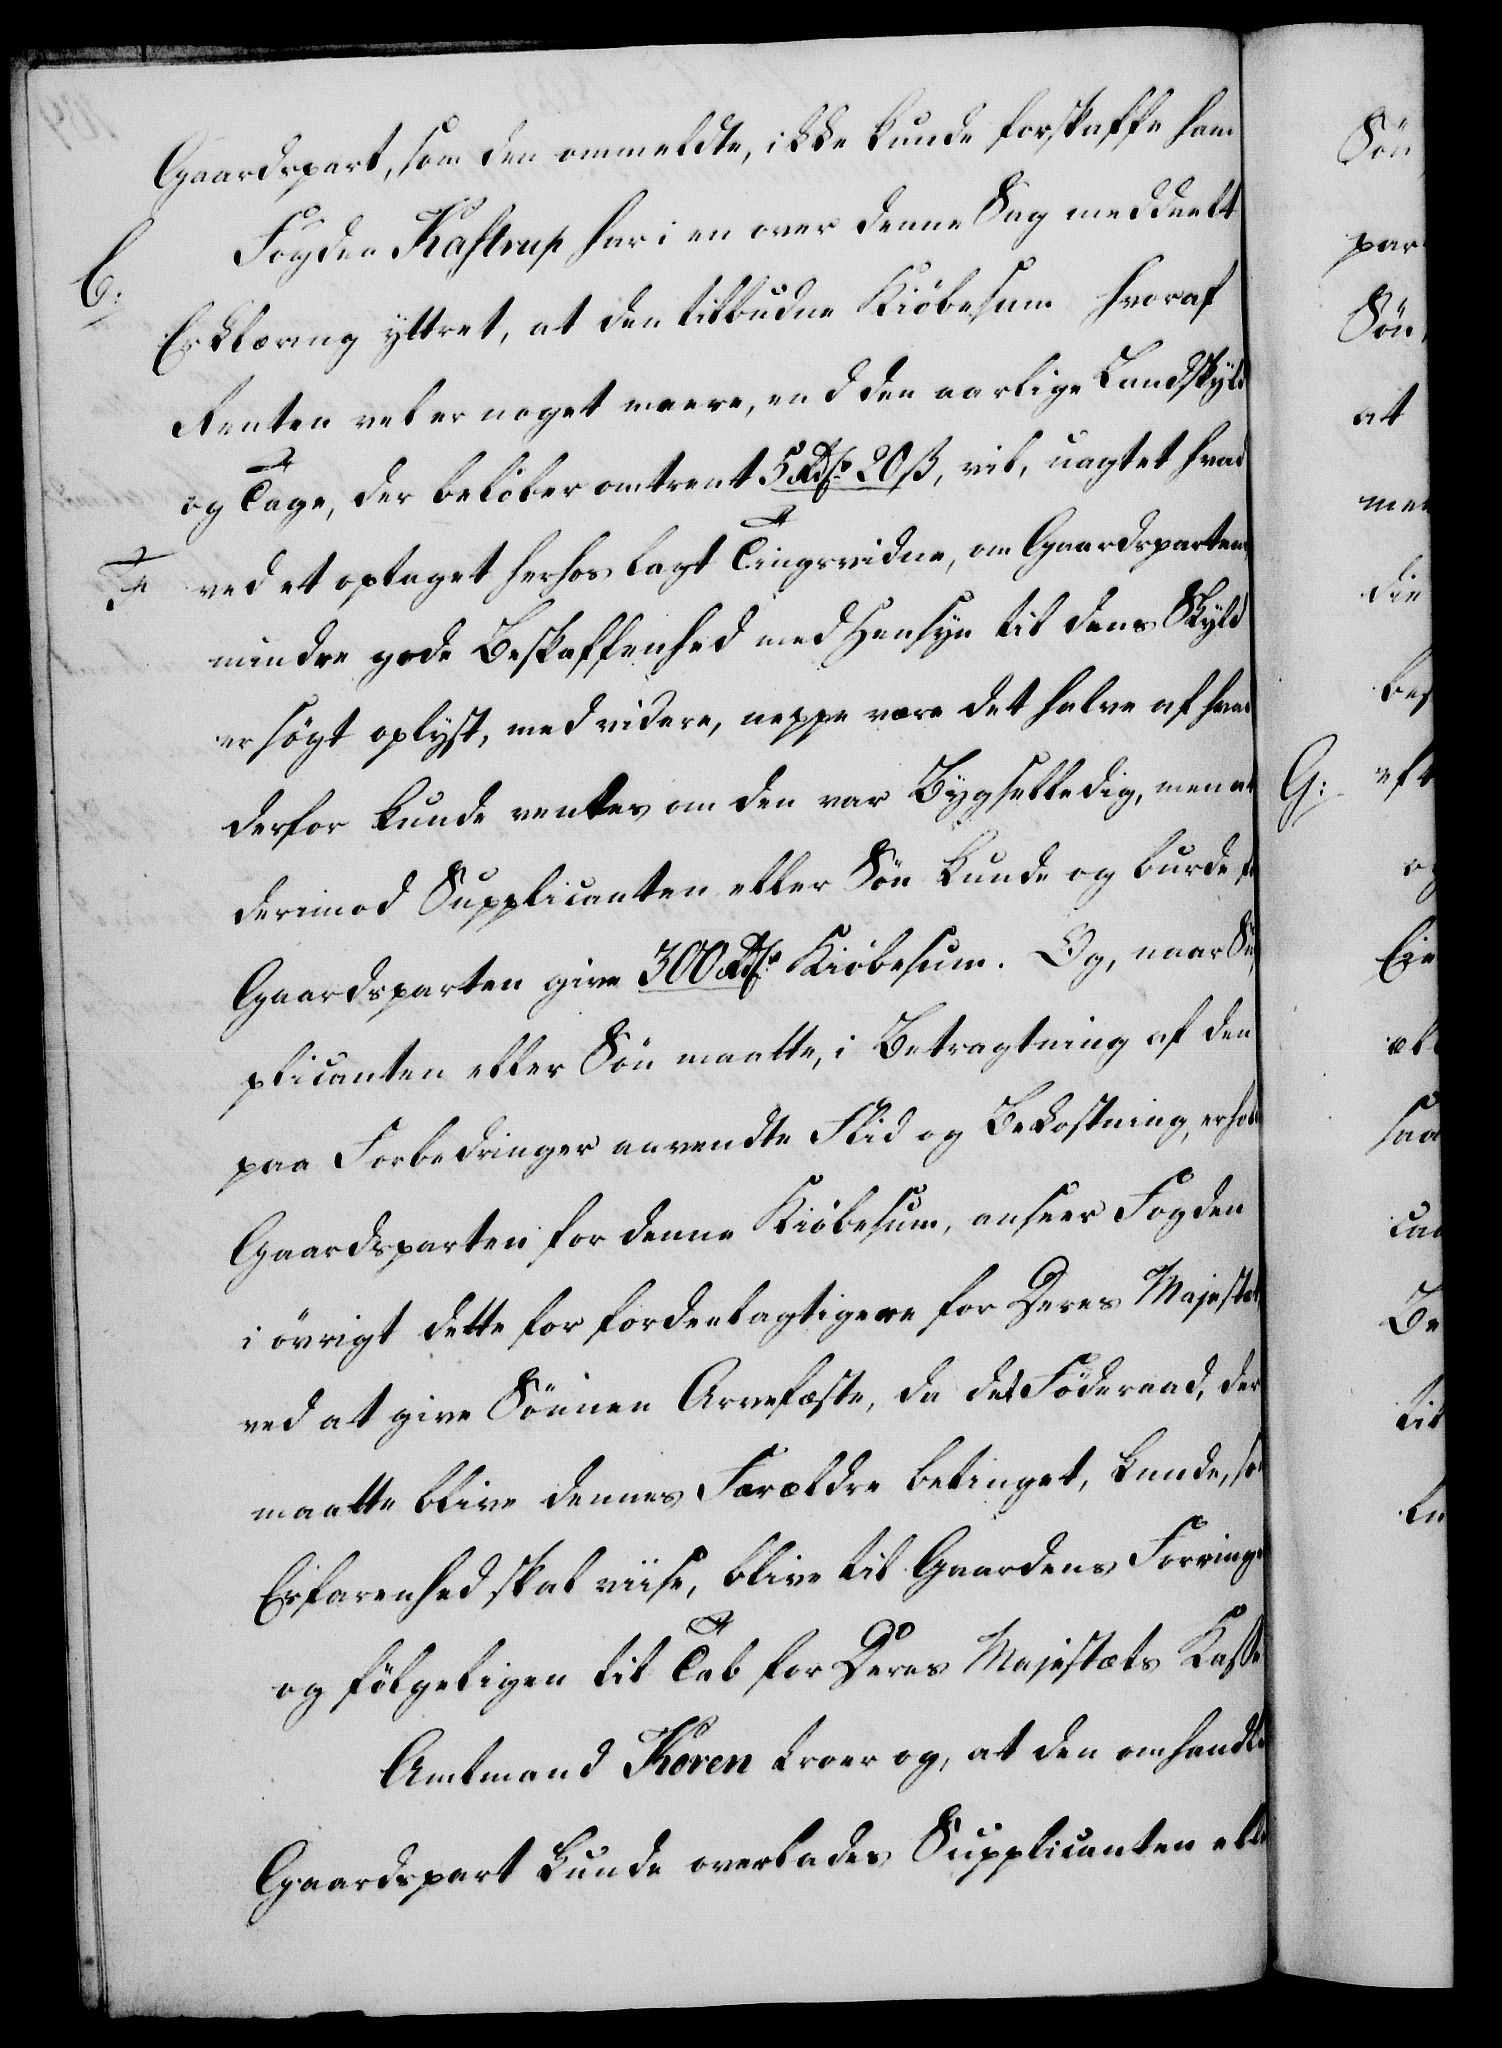 Gaardspart, som den ommeldte, ikke kunde forskaffe ham
E: Fogden Kastrup har i en over denne Sag meddeelt
Erklæring yttret, at den tilbudne Kiöbesum hvoraf
Renten vel er noget meere, end den aarlige Landskyld
og Tage, der belöber omtrent 5 Rdlr 20 ß, vil, uagtet hvad
F ved et optaget herhos lagt Tingsvidne, om Gaardspartens
mindre gode Beskaffenhed med Hensyn til dens Skyld
er sögt oplyst, med videre, neppe være det halve af hvad
derfor kunde ventes om den var Bygselledig, men at
derimod Supplicanten eller Sön kunde og burde for
Gaardsparten give 300 Rdlr Kiöbesum. Og, naar Sup
plicanten eller Sön maatte, i Betragtning af den
paa Forbedringer anvendte Flid og Bekostning, erholde
Gaardsparten for denne Kiöbesum, anseer Fogden
i övrigt dette for fordeelagtigere for Deres Majestet
ved at give Sönnen Arvefæste, da det Föderaad, der
maatte blive dennes Forældre betinget, kunde, som
Erfarenhed skal viise, blive til Gaardens Forringelse
og fölgeligen til Tab for Deres Majestæts Kasse
Amtmand Koren troer og, at den omhandlede
Gaardspart kunde overlades Supplicanten eller
Sön
par
Sön
at
men
die
bes
G: eft
og
Eie
all
saa
can
Be
til